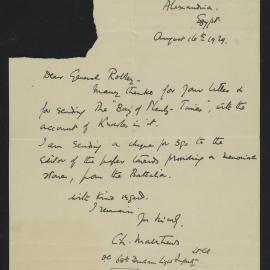 Alexandria.
Egypt.
August 16th 1929.
Dear General Rolley -
Many thanks for your letter &
for sending the "Bay of Plenty Times", with the
account of in it.
I am sending a cheque for to the
Editor of the paper towards providing a memorial
stone, from the Battalion.
with kind regards.
I remain
Ch. Matthews
Lt Col